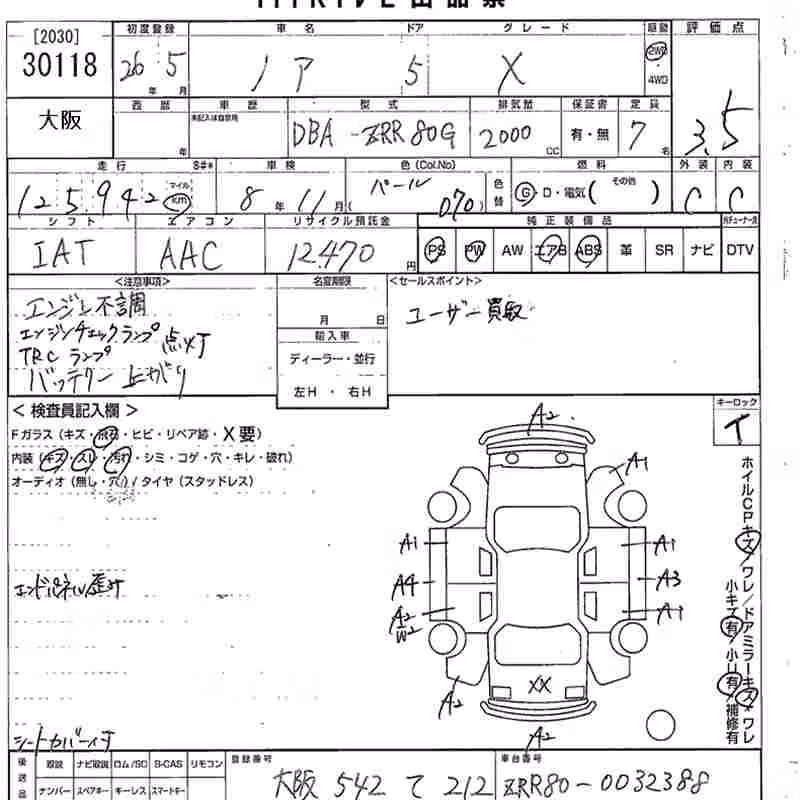 [2030]
30118
初度登録 車名 ドア グレード 駆動 評価点
26年 5月 ノア 5 X 2WD 4WD
3.5
大阪
西暦 車歴 型式 排気量 保証書 定員
年 未記入は自家用 DBA-ZRR80G 2000CC 有・無 7名
走行 S#* 車検 色(Col.No) 燃料 外装 内装
125942 マイル km 8年 11月 ( パール 070 ) 色替 G・D・電気( その他 ) C C
シフト エアコン リサイクル預託金 純正装備品
IAT AAC 12,470円 PS PW AW エアB ABS 革 SR ナビ DTV
<注意事項> 名変期限 <セールスポイント>
エンジン不調
エンジンチェックランプ
TRCランプ 点灯
バッテリー上がり
月 日
輸入車
ディーラー・並行
左H ・ 右H
ユーザー買取
< 検査員記入欄 >
Fガラス (キズ・飛石・ヒビ・リペア跡・X要)
内装 (キズ・スレ・汚れ・シミ・コゲ・穴・キレ・破れ)
オーディオ (無し・穴) / タイヤ (スタッドレス)
キーロック
A2
A1
A1 A1
A4 A3
A2 W2 A1
XX
A2
A2
ホイルCPキズ/ワレ/ドアミラーキズ・ワレ
小キズ有/小U有/補修有
シートカバー付
後送品 取説 ナビ取説 ロム/SD B-CAS リモコン
ナンバー スペアキー キーレス スマートキー
登録番号 車台番号
大阪 542 て 212 ZRR80-0032388